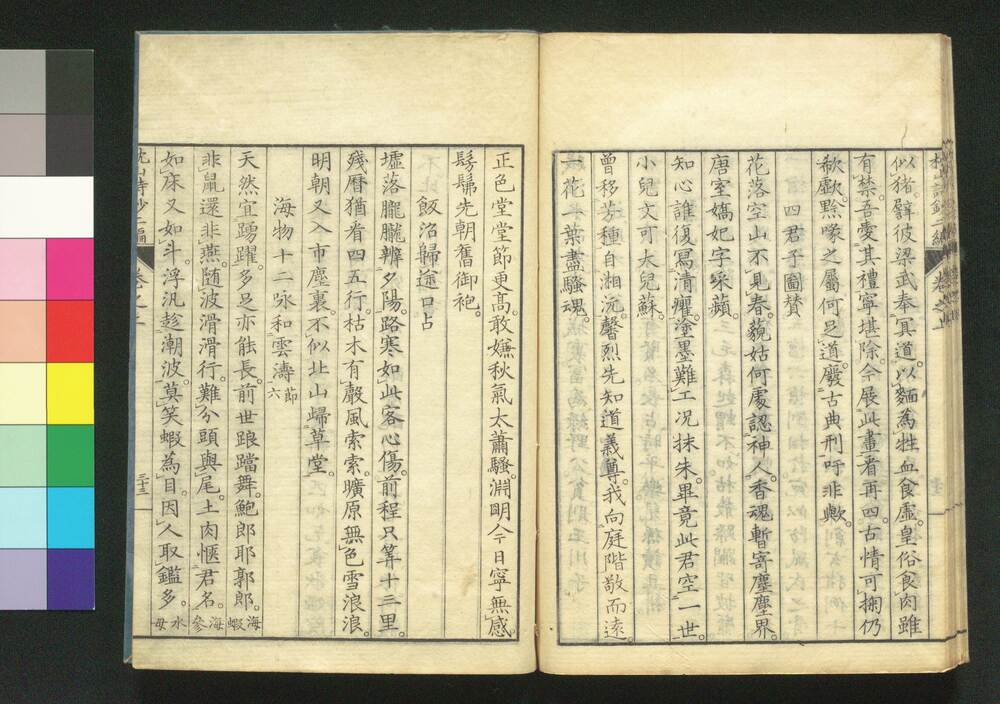 似猪。劈彼梁武奉冥道。以麵為牲血食虛。皇俗食肉雖
有禁。吾愛其禮寧堪除。今展此畫看再四。古情可掬仍
欷歔。黙喙之屬何足道。廢古典刑吁非歟。
四君子圖贊
花落空山不見春。藐姑何處認神人。香魂暫寄塵塵界。
唐室嬌妃字采蘋。
知心誰復寫清癯。塗墨難工况抹朱。畢竟此君空一世。
小兒文可大兒蘇。
曾移芳種自湘沅。馨烈先知道義尊。我向庭階敬而遠。
一花一葉盡騷魂。
正色堂堂節更高。敢嫌秋氣太蕭騷。淵明今日寧無感。
髣髴先朝舊御袍。
飯沿歸途口占
墟落朧朧辨夕陽。路寒如此客心傷。前程只筭十三里。
殘曆猶看四五行。枯木有聲風索索。曠原無色雪浪浪。
明朝又入市塵裏。不似北山歸草堂。
海物十二咏和雲濤 節六
天然宜踴躍。多足亦能長。前世踉蹡舞。鮑郎耶郭郎。海蝦
非鼠還非燕。随波滑滑行。難分頭與尾。土肉愜君名。海參
如床又如斗。浮汎趁潮波。莫笑蝦為目。因人取鑑多。水母
枕山詩鈔二編 卷之上 三十三